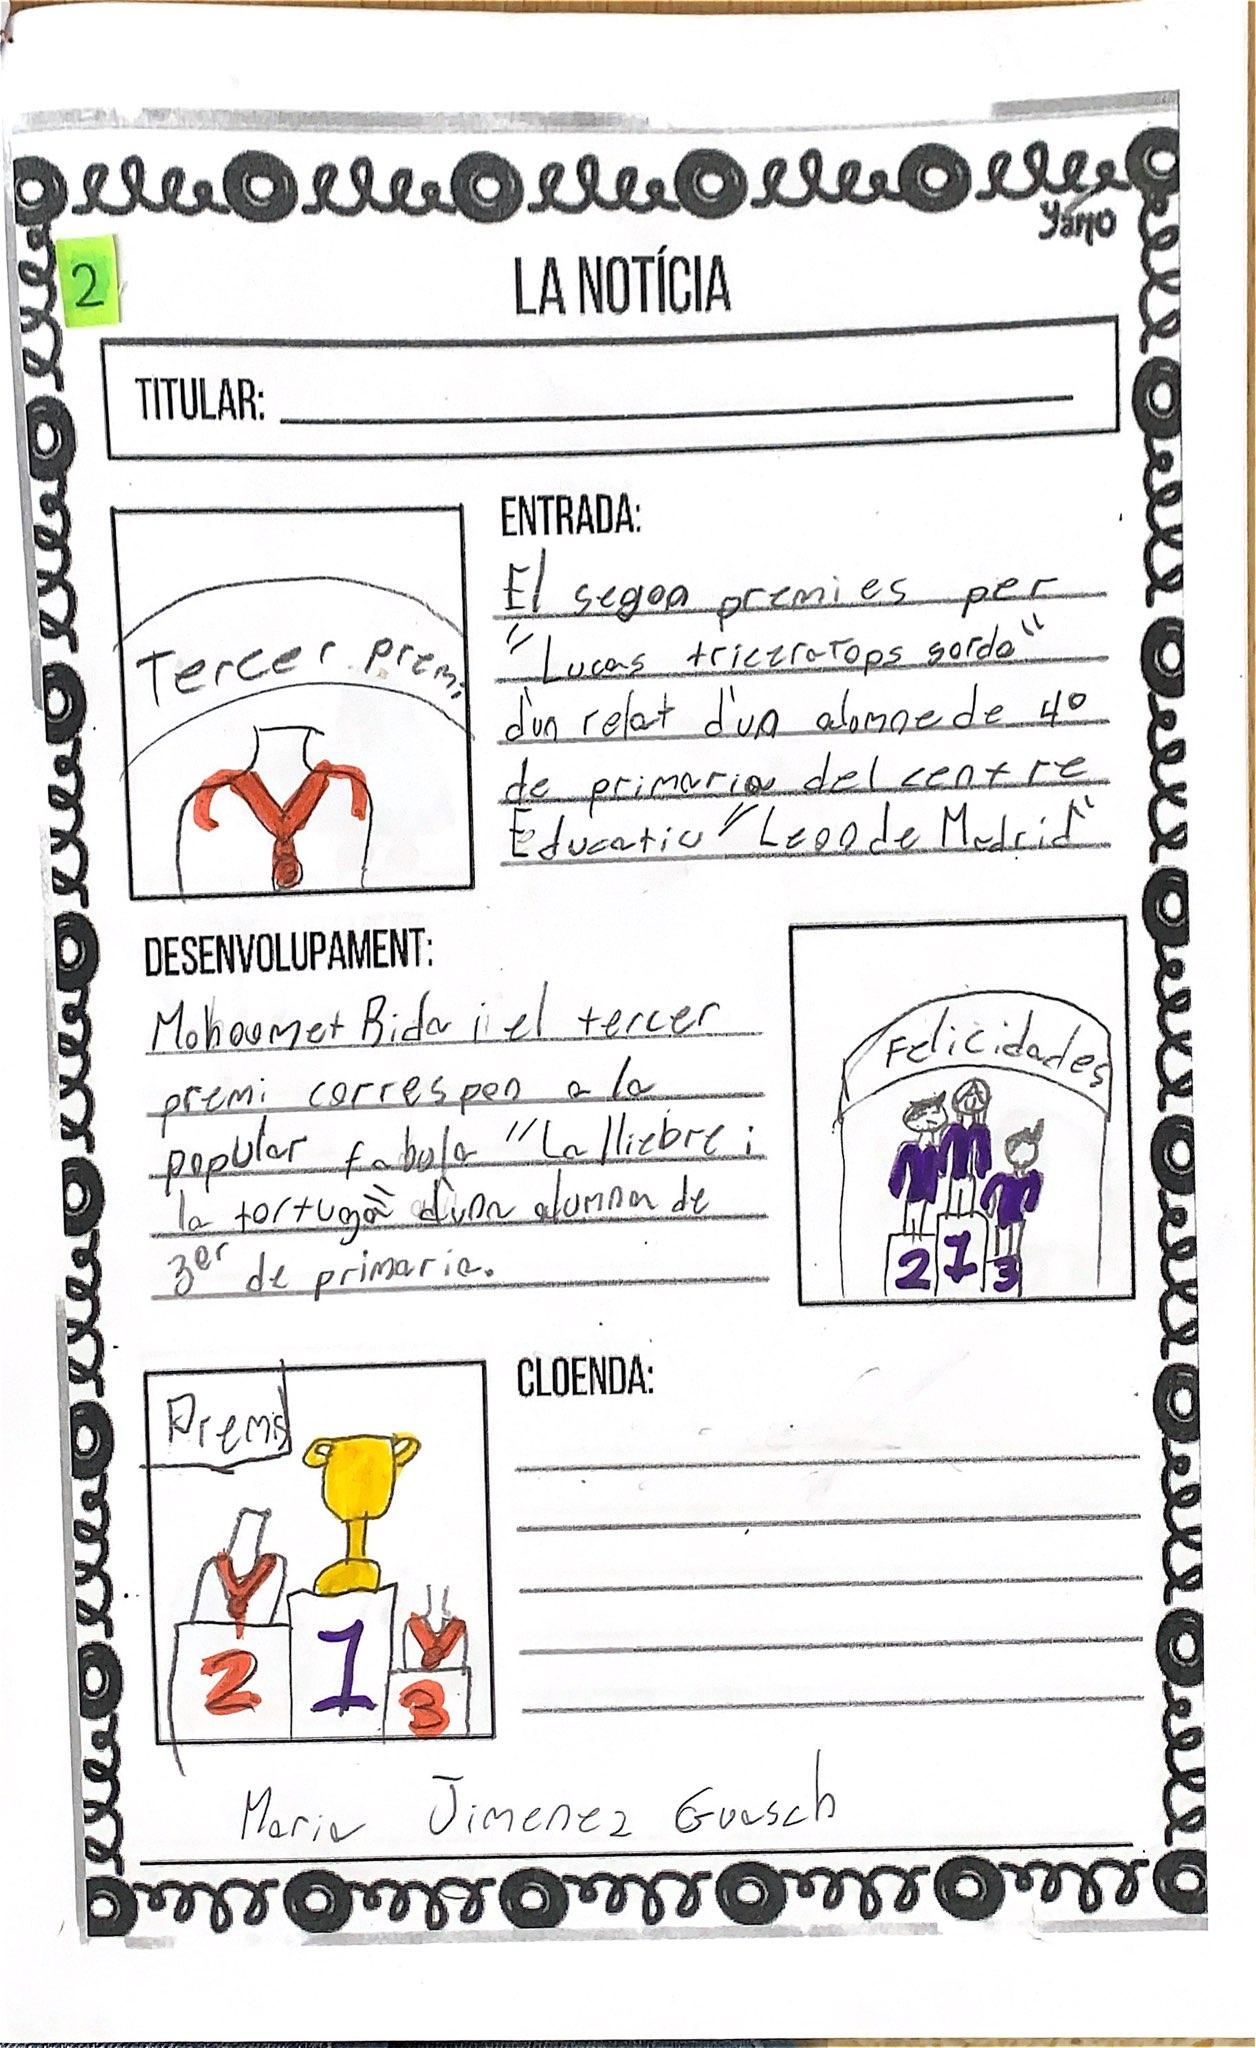 Yamo
2
LA NOTÍCIA
TITULAR:
Tercer premi
ENTRADA:
El segon premi es per
"Lucas triceratops sordo"
d'un relat d'un alomne de 4º
de primaria del centre
Educatiu "Leon de Madrid"
DESENVOLUPAMENT:
Mohoomet Rida i el tercer
premi correspon a la
popular fabula "La lliebre i
la tortuga" d'una alumna de
3er de primaria.
Felicidades
2 1 3
Premis
2 1 3
CLOENDA:
Maria Jimenez Guasch